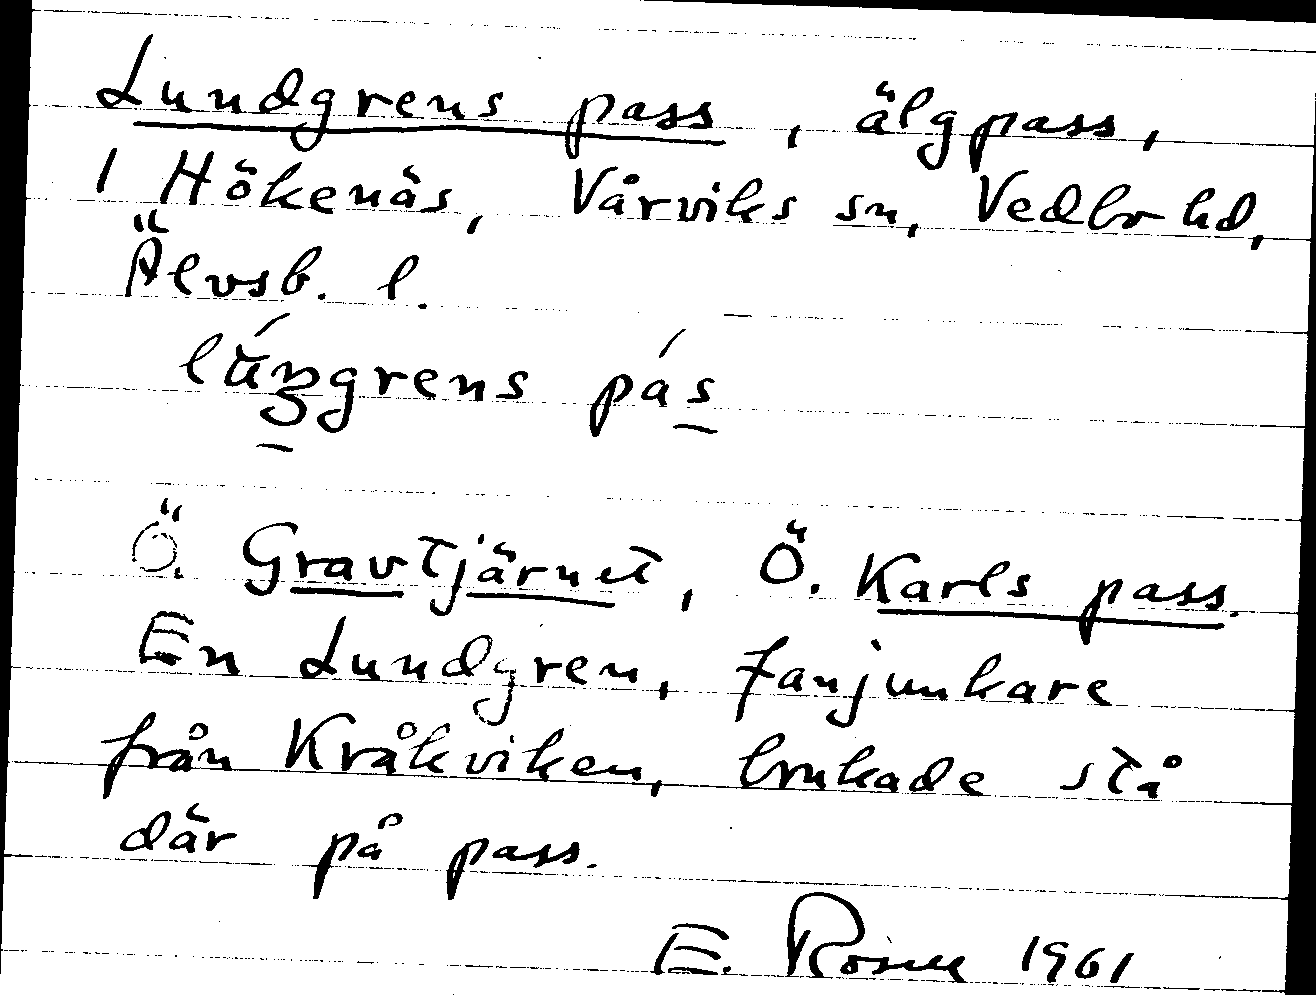 Lundgrens pass, älgpass,
1 Hökenäs, Vårviks sn, Vedbo hd,
Älvsb. l.
lúŋgrens pás
Ö. Gravtjärnet, Ö. Karls pass.
En Lundgren, fanjunkare
från Kråkviken, brukade stå
där på pass.
E. Rosell 1961